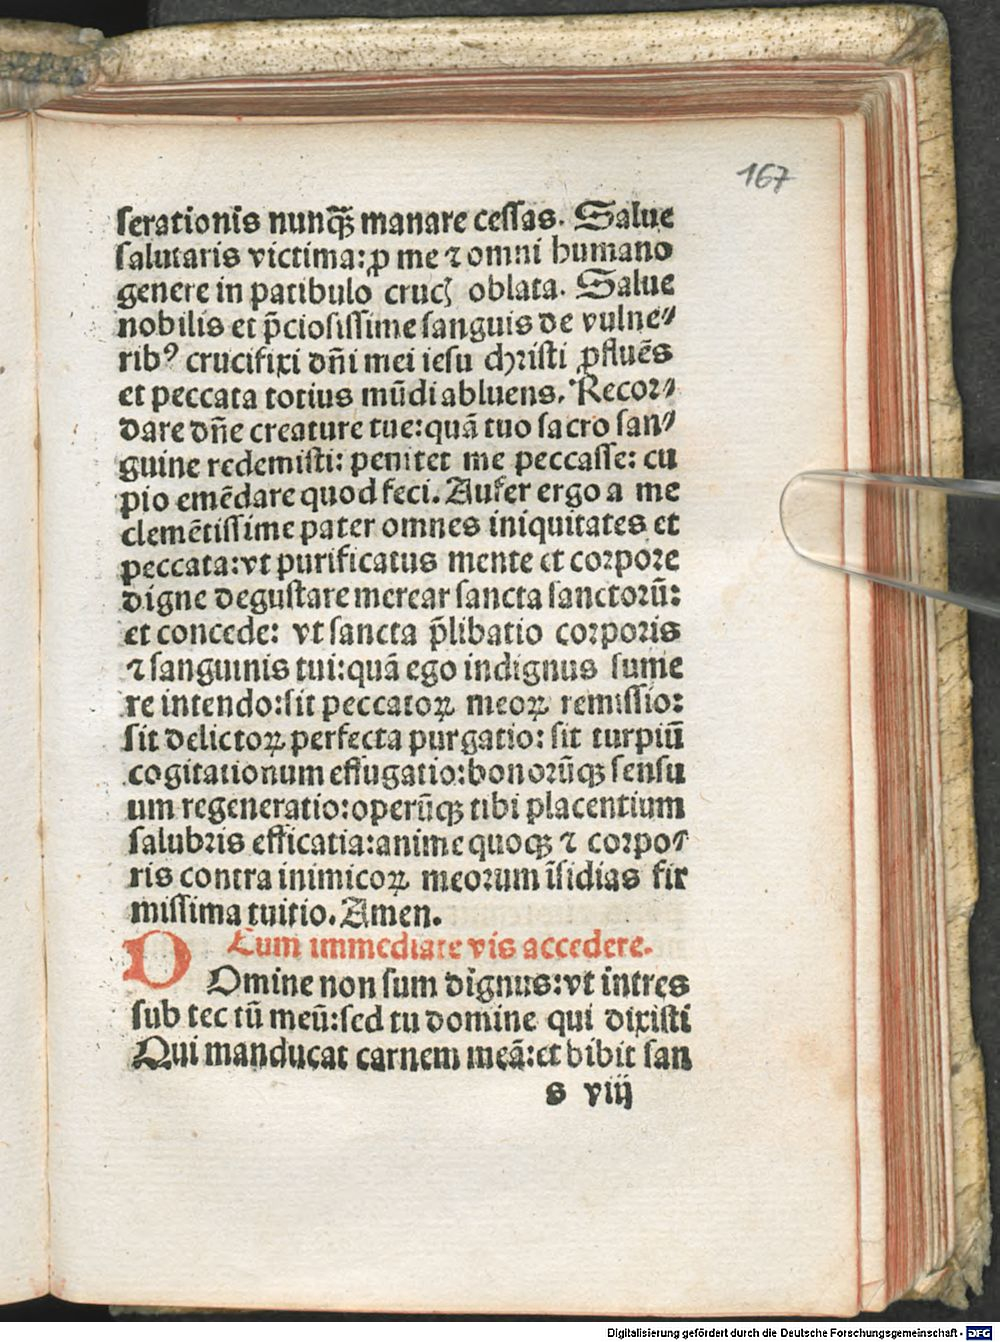 167
serationis nunq̃ꝫ manare cessas. Salue
salutaris victima: ꝓ me ⁊ omni humano
genere in patibulo crucꝭ oblata. Salue
nobilis et p̃ciosissime sanguis de vulne⸗
ribꝰ crucifixi dñi mei iesu christi ꝓfluẽs
et peccata totius mũdi abluens. Recor⸗
dare dñe creature tue: quã tuo sacro san⸗
guine redemisti: penitet me peccasse: cu
pio emẽdare quod feci. Aufer ergo a me
clemẽtissime pater omnes iniquitates et
peccata: vt purificatus mente et corpore
digne degustare merear sancta sanctorũ:
et concede: vt sancta p̃libatio corporis
⁊ sanguinis tui: quã ego indignus sume
re intendo: sit peccatoꝝ meoꝝ remissio:
sit delictoꝝ perfecta purgatio: sit turpiũ
cogitationum effugatio: bonorũqꝫ sensu
um regeneratio: operũqꝫ tibi placentium
salubris efficatia: anime quoqꝫ ⁊ corpo⸗
ris contra inimicoꝝ meorum ĩsidias fir
missima tuitio. Amen.
Cum immediate vis accedere.
D Omine non sum dignus: vt intres
sub tectũ meũ: sed tu domine qui dixisti
Qui manducat carnem meã: et bibit san
s viij
Digitalisierung gefördert durch die Deutsche Forschungsgemeinschaft - DFG